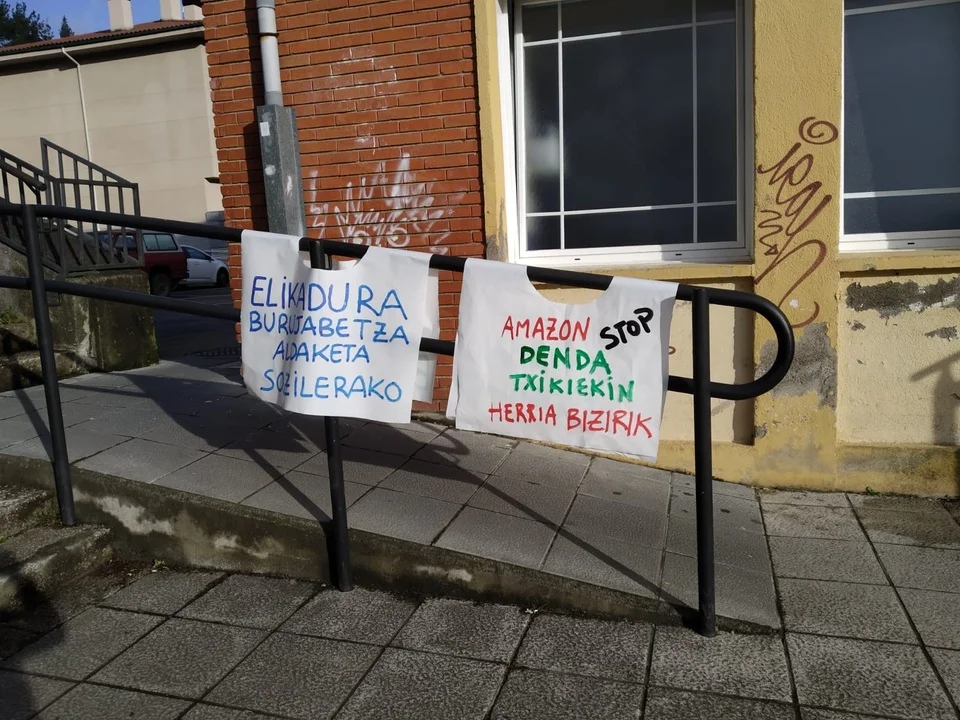 ELIKADURA
BURUJABETZA
ALDAKETA
SOZILERAKO
AMAZON STOP
DENDA
TXIKIEKIN
HERRIA BIZIRIK